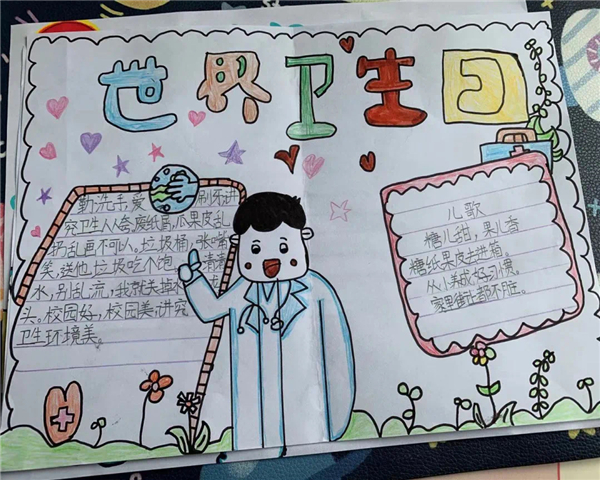 世界卫生日
勤洗手,爱刷牙,讲
究卫生人人夸,废纸篇,瓜果皮,乱
扔乱画不可以。垃圾桶,张嘴
笑,送他垃圾吃个饱。
水,别乱流,我就去掉
头。校园好,校园美,讲究
卫生环境美。
儿歌
糖儿甜,果儿香
糖纸果皮去进箱。
从小养成好习惯。
家里街上都不脏。